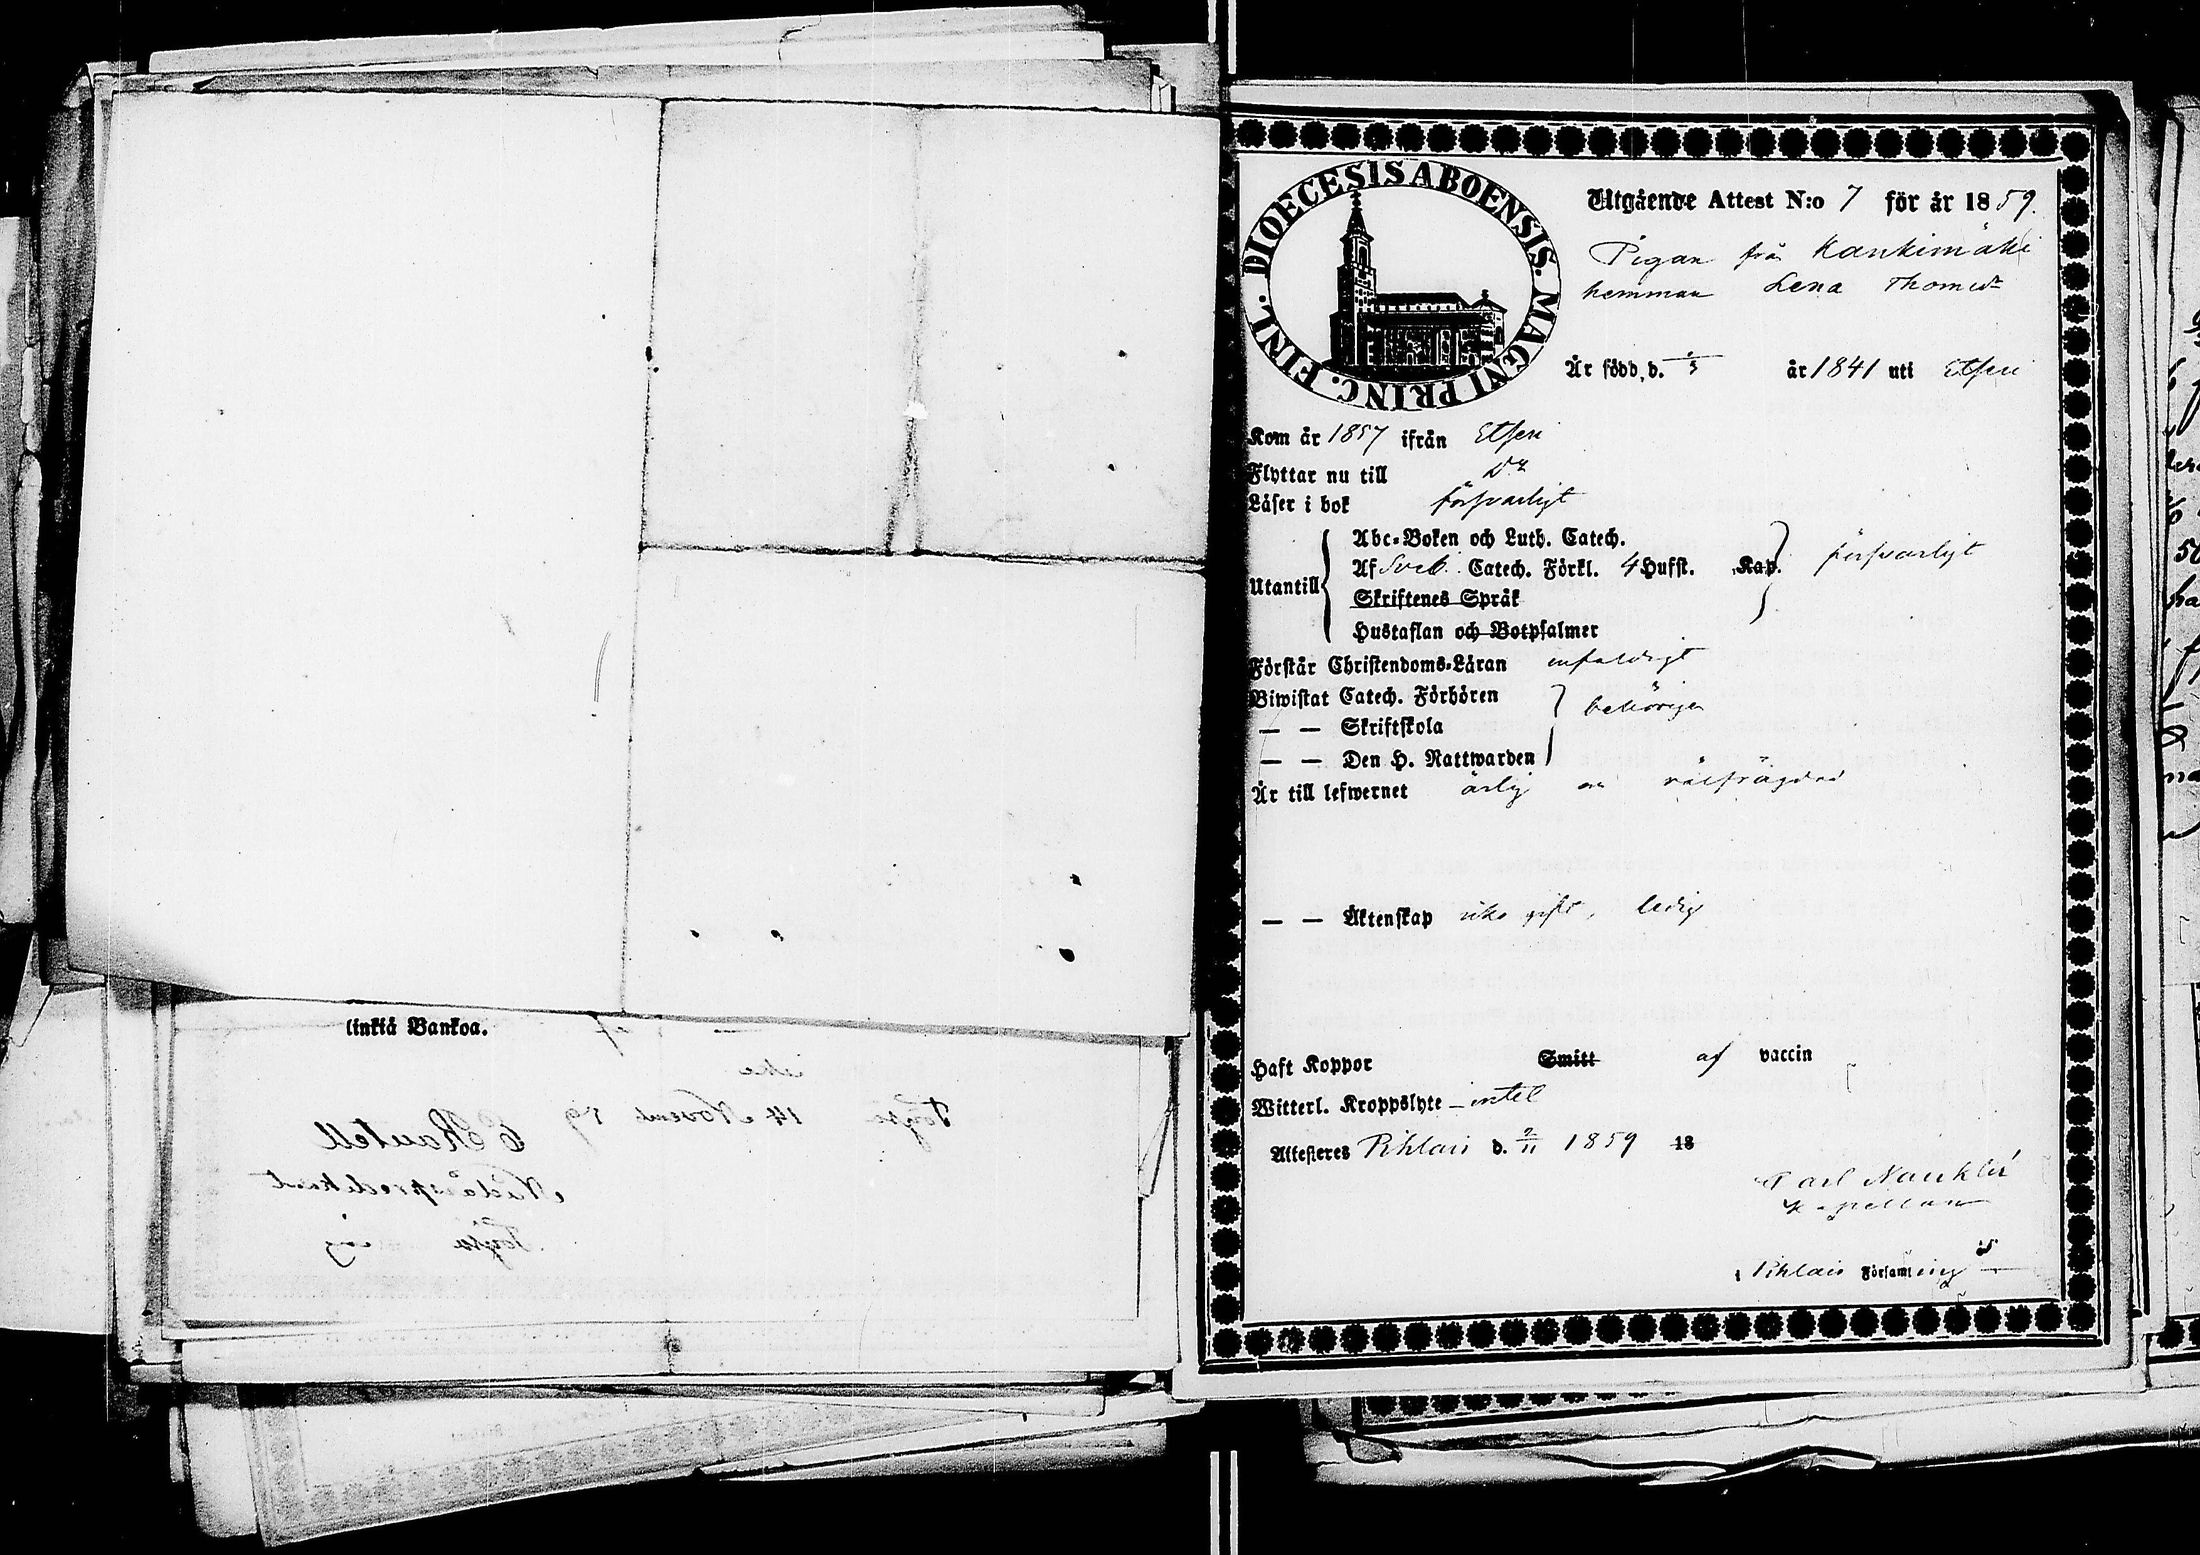 linkiä Bankoa.
14 Novemb 59
C Rautell
Nådårspredikant
DIOECESIS ABOENSIS. MAGNI PRINC. FINL.
Utgående Attest N:o 7 för år 1859.
Pigan från Kankimäki
hemman Lena Thomdr
Är född, d. år 1841 uti Etseri
Kom år 1857 ifrån Etseri
Flyttar nu till Do
Läser i bok försvarligt
Utantill
Abc-Boken och Luth. Catech.
Af Sveb. Catech. Förkl. 4 Hufst. Kap. försvarligt
Skriftenes Språk
Hustaflan och Botpsalmer
Förstår Christendoms-Läran enfaldigt
Biwistat Catech. Förhören behörigen
— — Skriftskola
— — Den H. Nattwarden
Är till lefwernet ärlig och välfrägdad
— — Äktenskap icke gift, ledig
Haft Koppor Smitt af vaccin
Witterl. Kroppslyte – intet
Attesteres Pihlais d. 9/11 1859 18
Carl Nauklér
Kapellan
i Pihlais Församling